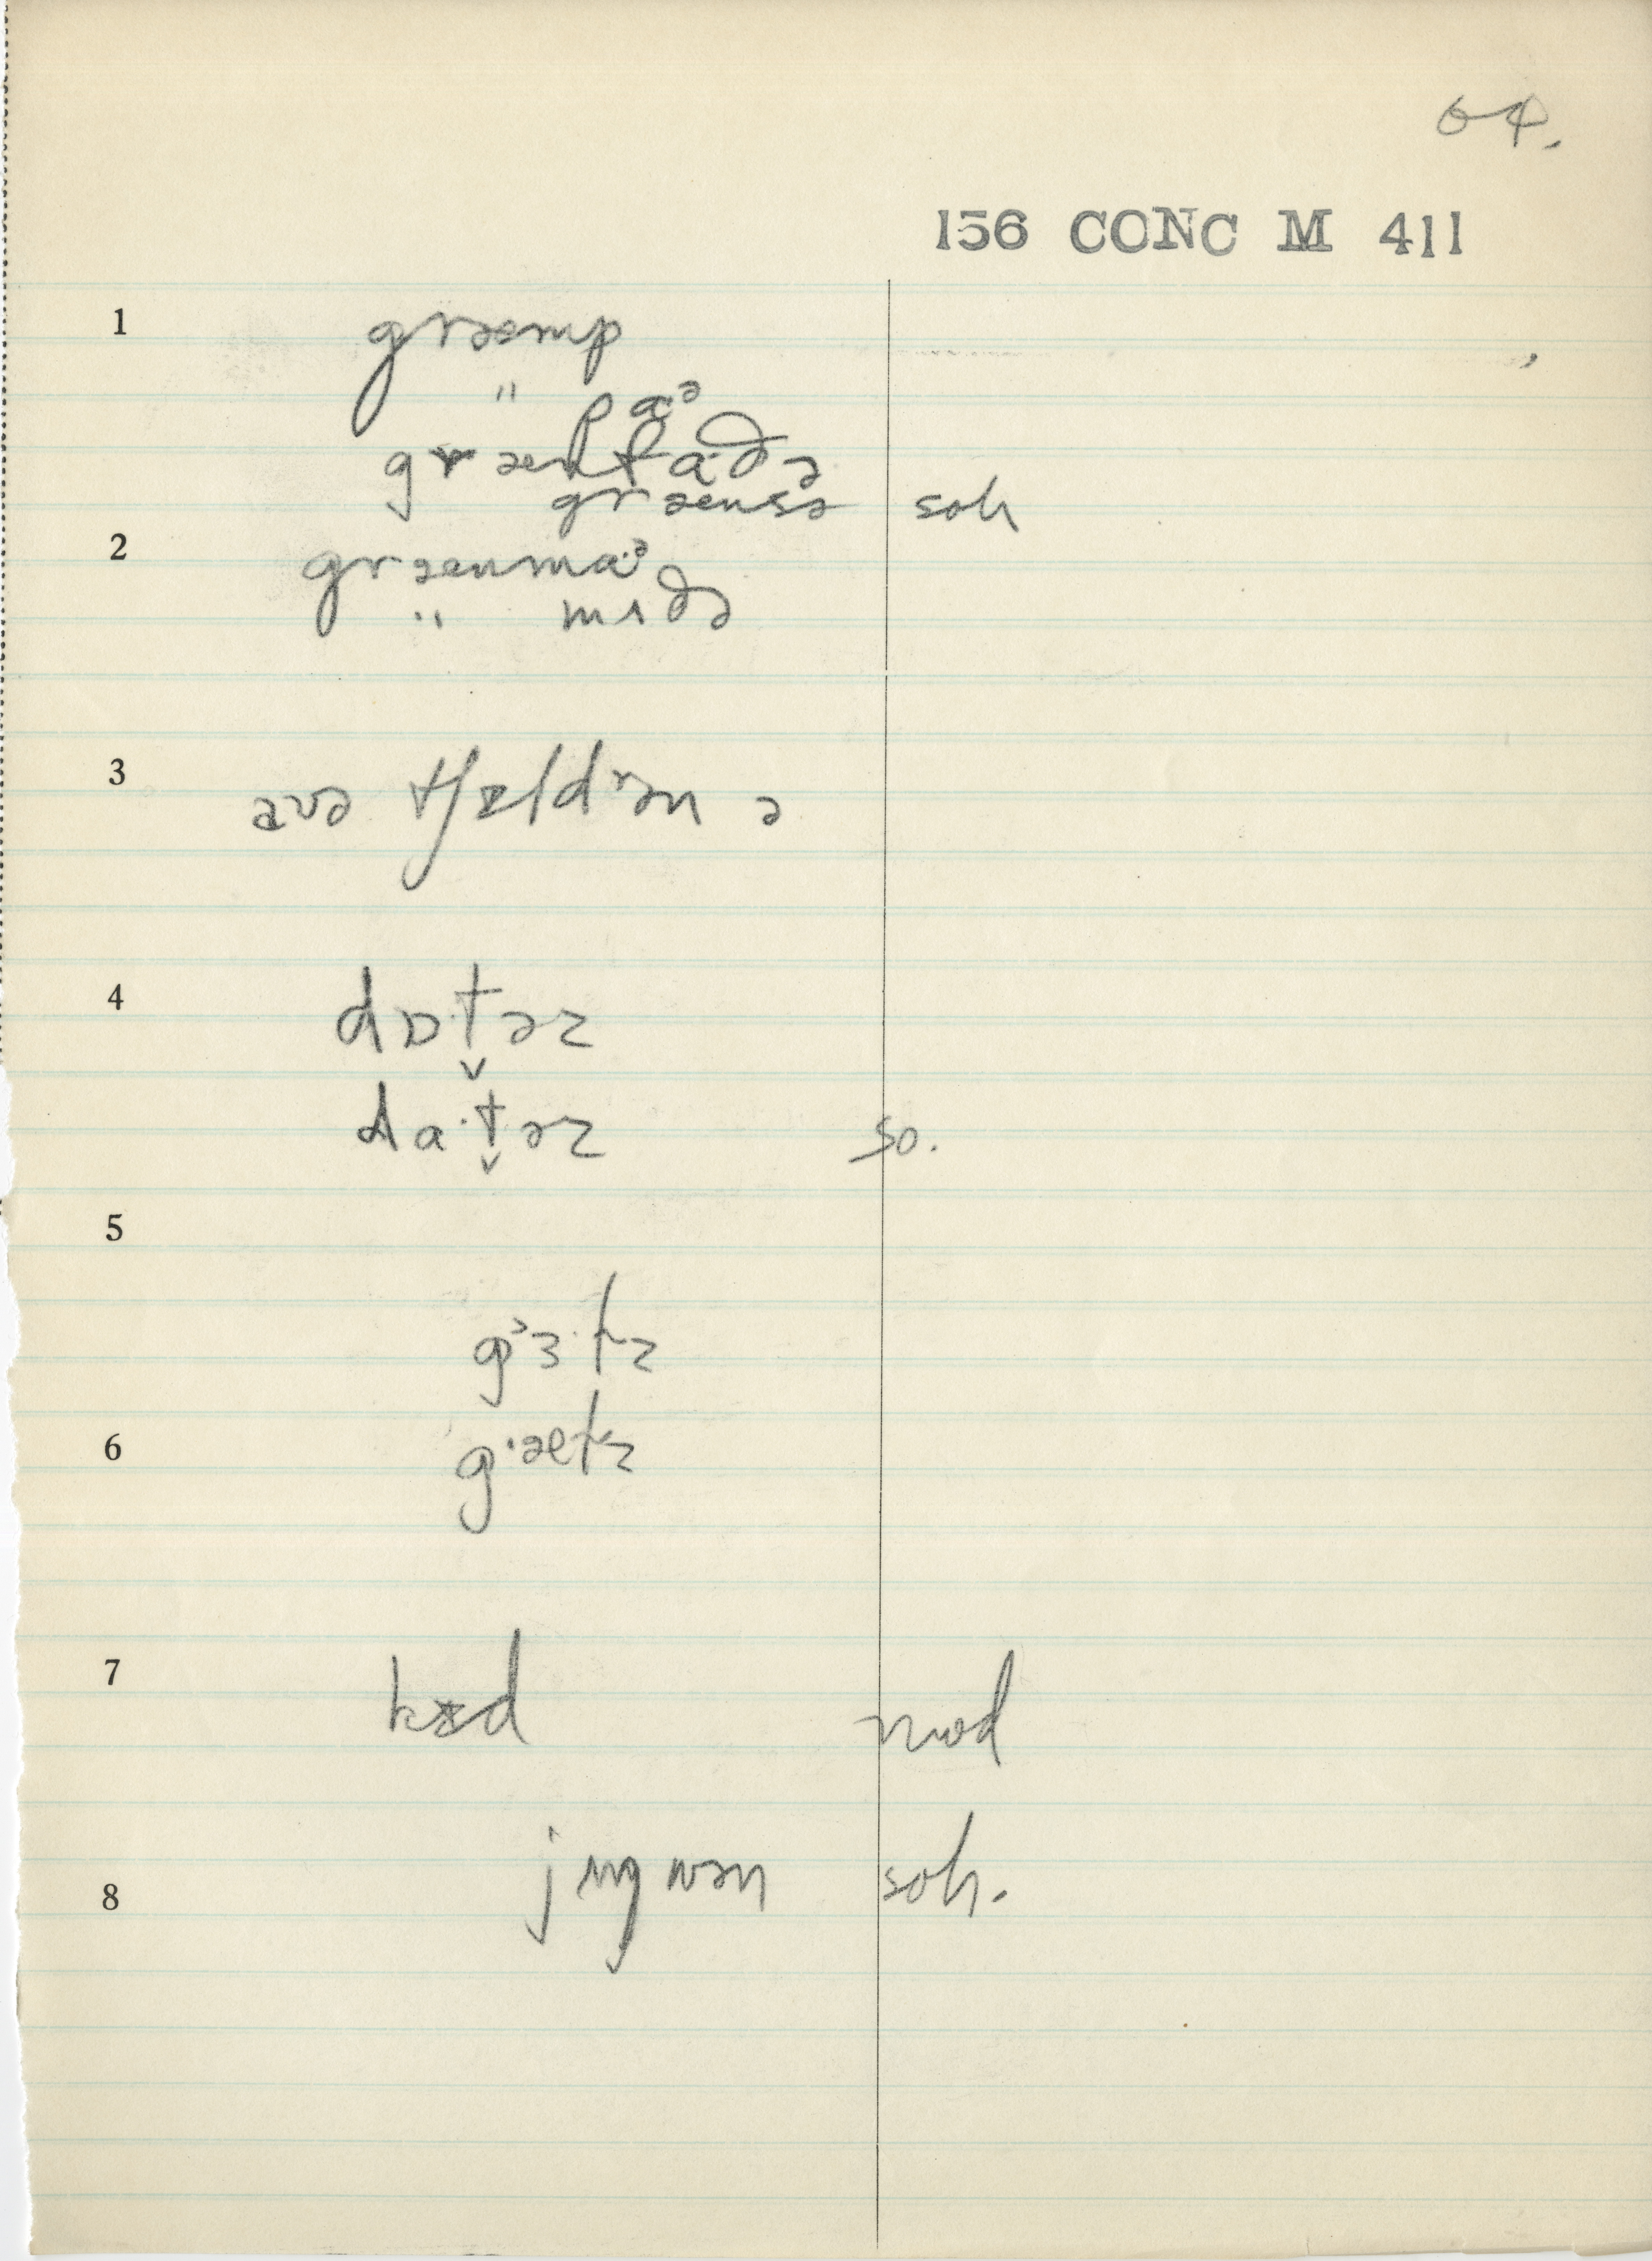 64.
156 CONC M 411
1 græmp
" pɑᵊ
græn fɑ·ðə
grænsə soh
2 grænmɑᵊ
" mʌðə
3 ɑvə tʃɪldrən ə
4 dɒ·t̬əz
dɑ·t̬əz so.
5
gᵊɜ·lz
6 gˈælz
7 kɪd mod
8 jʌŋ wən soh.